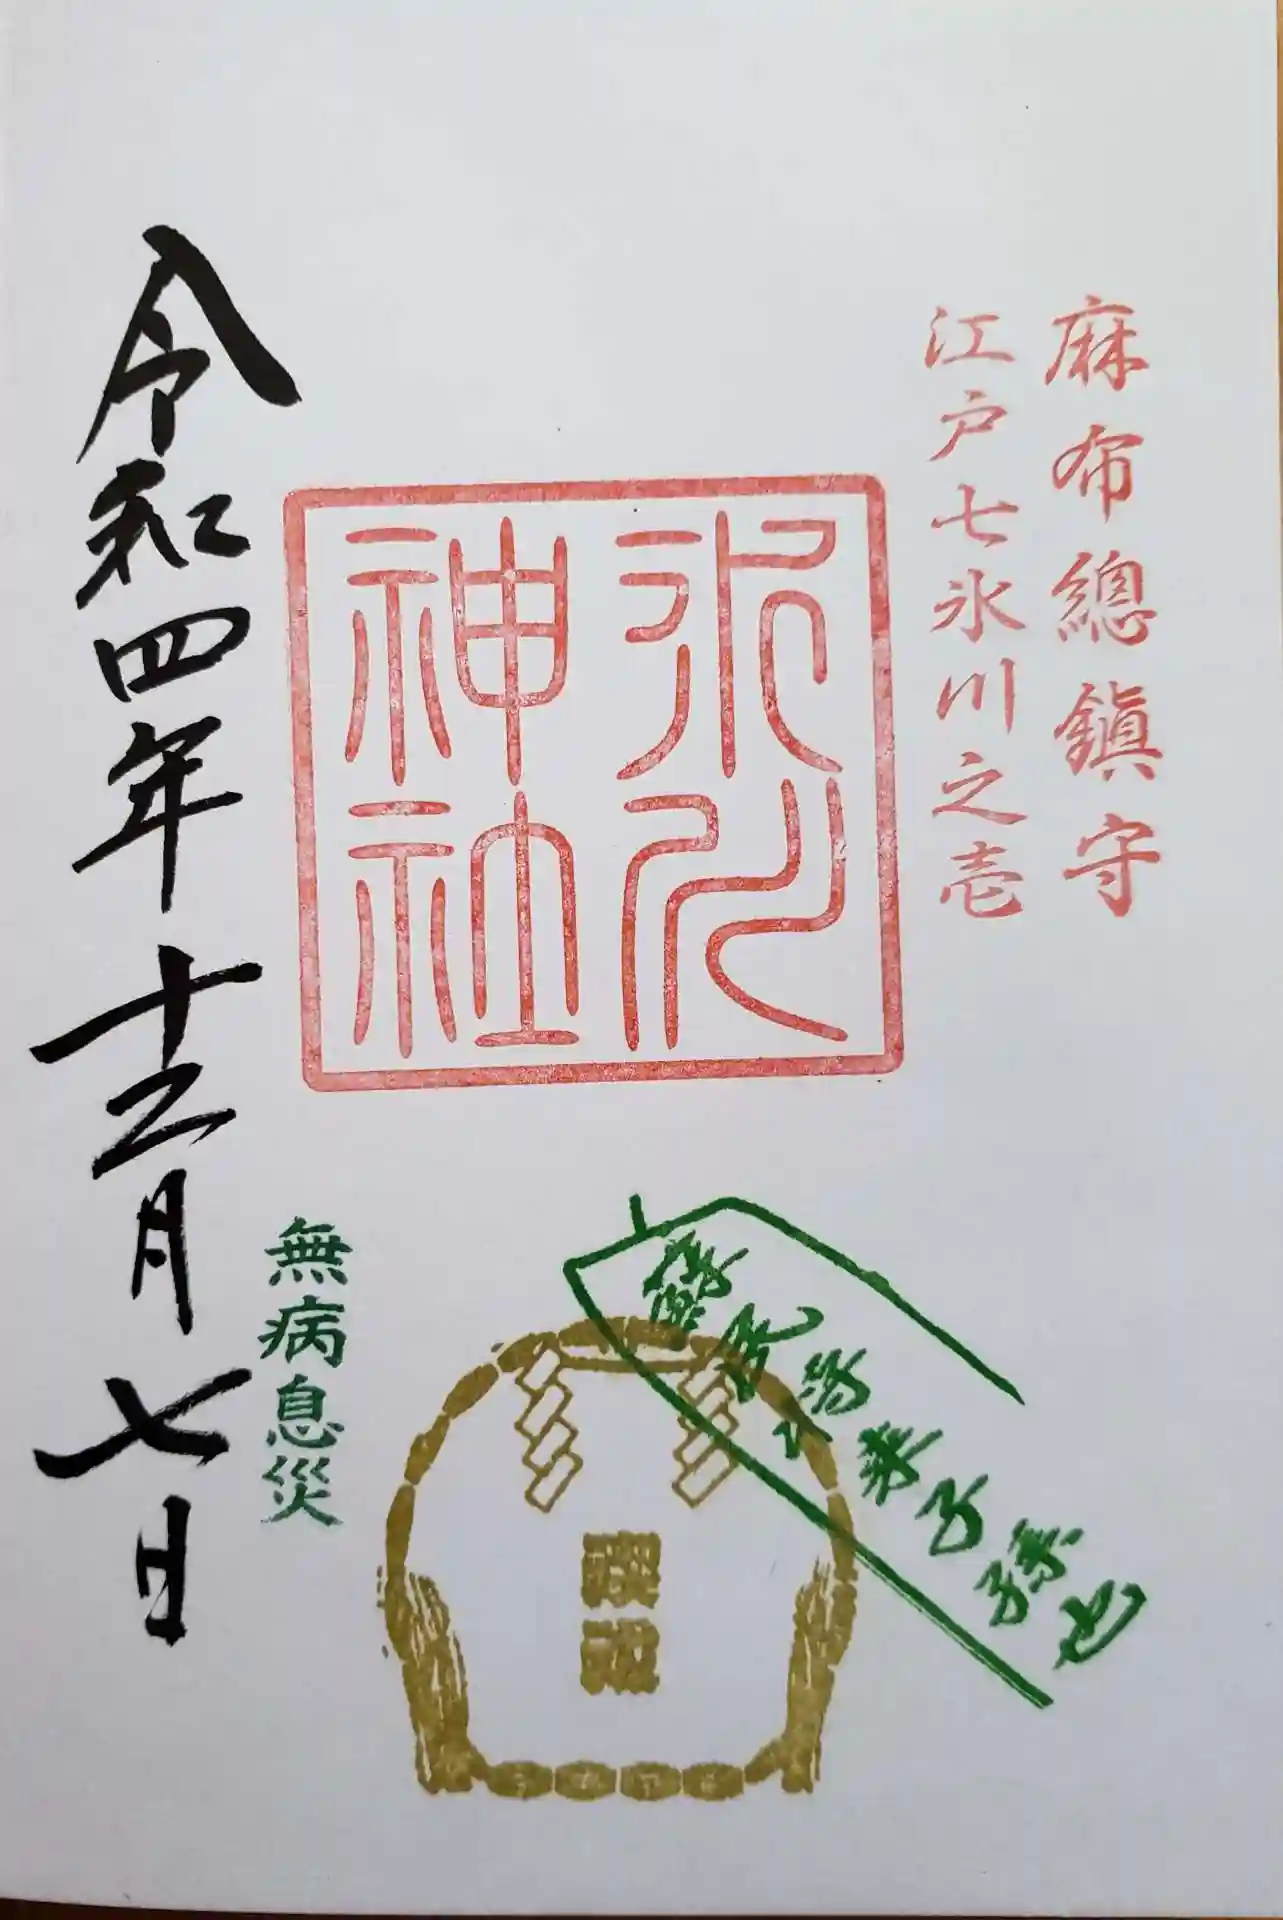 麻布總鎮守
江戸七氷川之壱
氷川
神社
蘇民将来子孫也
無病息災
令和四年十二月七日